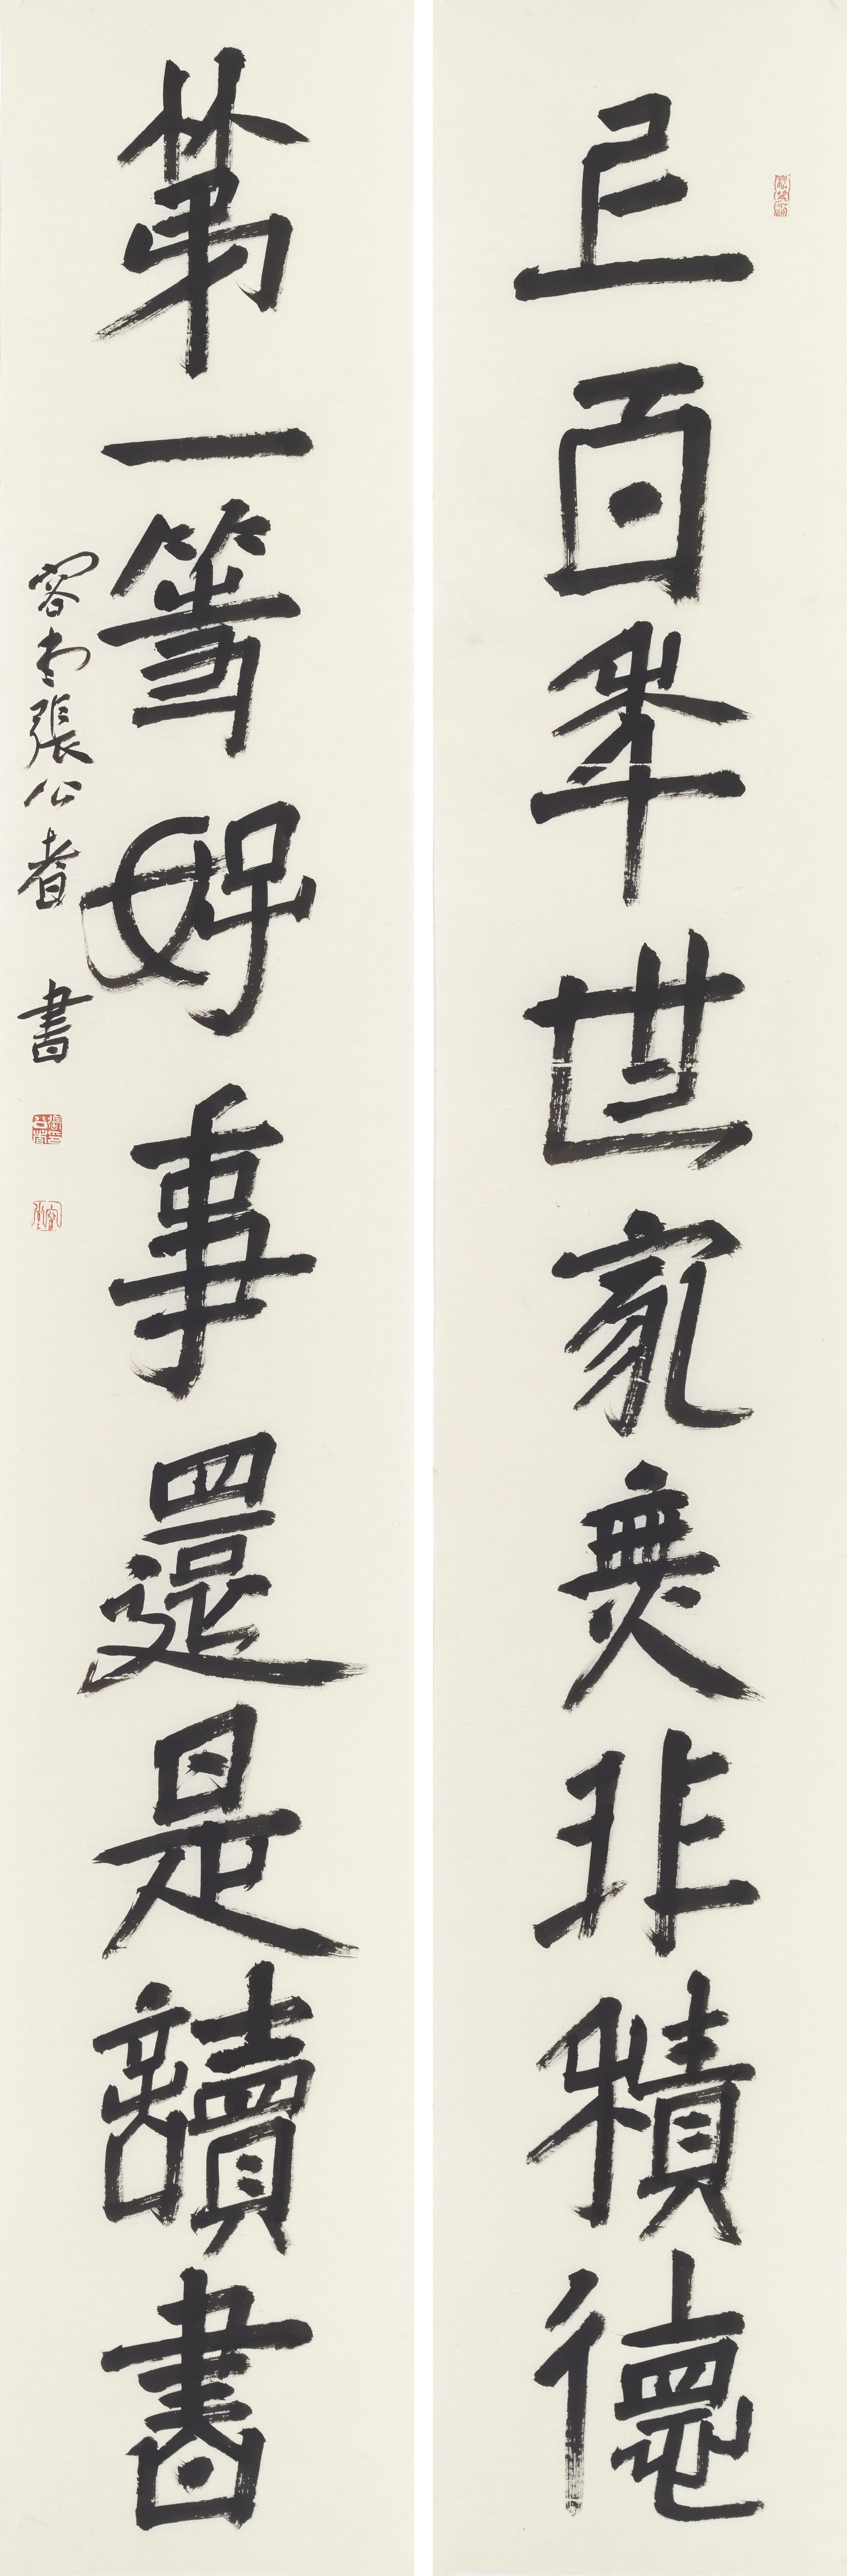 已百年世家無非積德
第一等好事還是讀書
容堂張公者書